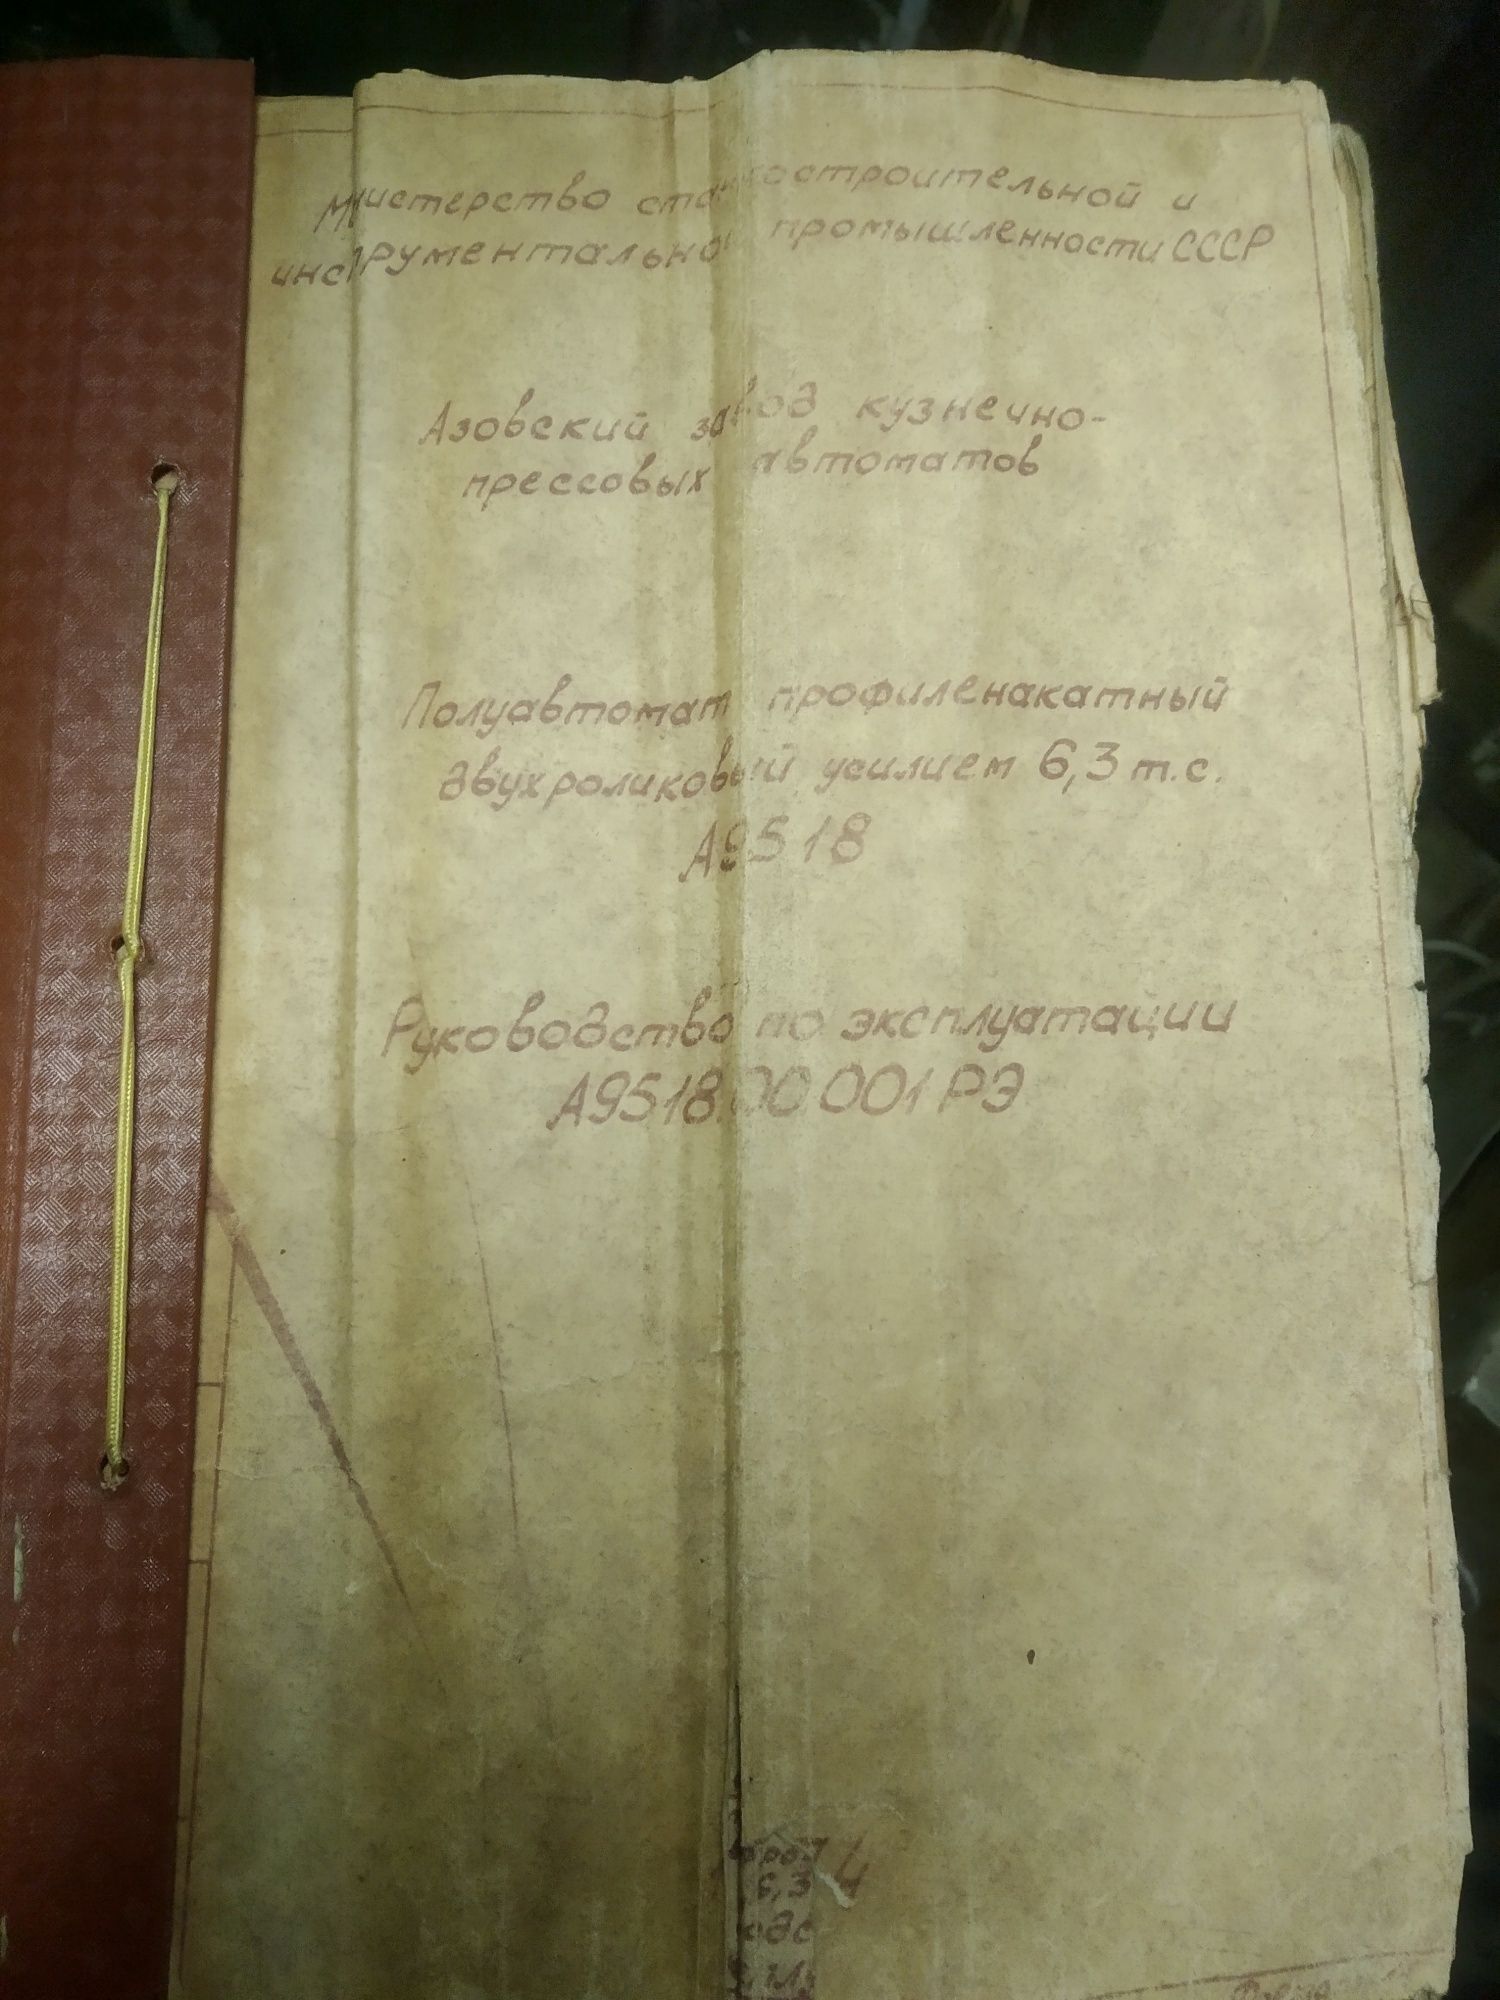 Министерство станкостроительной и
инструментальной промышленности СССР
Азовский завод кузнечно-
прессовых автоматов
Полуавтомат профиленакатный
двухроликовый усилием 6,3 т.с.
А9518
Руководство по эксплуатации
А9518.00.001 РЭ
6,3